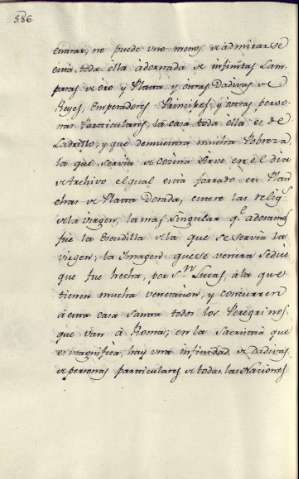 586
entrar, no puede uno menos de admirarse
está toda ella adornada de infinitas Lam-
paras de oro y Plata, y otras Dadivas de
Reyes, Emperadores, Principes, y otras perso-
nas Particulares, la casa toda ella es de
Ladrillo, y que demuestra mucha Pobreza
la que servia de cocina sirve en el dia
de Archivo el qual está forrado en Plan
chas de Plata Dorada, entre las reliq.s
de la Virgen, la mas singular q.e adoramos
fue la Escudilla de la que se servia la
Virgen, la Imagen que se venera se dice
que fue hecha por S.n Lucas á la que
tienen mucha veneracion, y concurren
á esta casa santa todos los Peregrinos
que van á Roma; en la Sacristia que
es magnifica, hay una infinidad de dadivas
de personas particulares de todas las Naciones